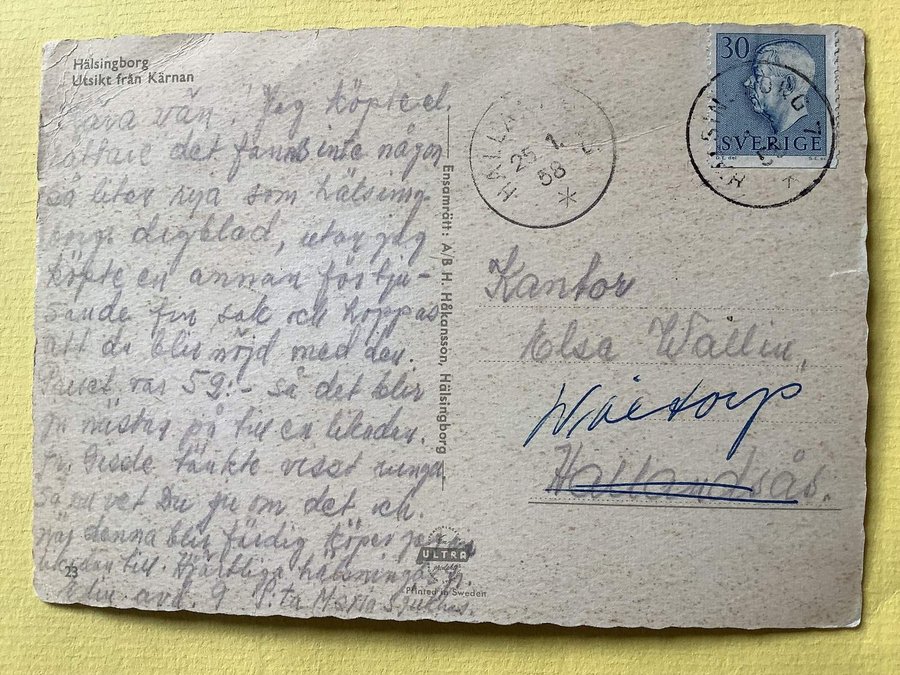 Hälsingborg
Utsikt från Kärnan
Kära vän! Jag köpte ej
det fanns inte någon
så liten nya som hälsing-
borgs dagblad, utan jag
köpte en annan förtju-
sande fin sak och hoppas
att du blir nöjd med den.
Priset var 59:- så det blir
ju nästan på till en likadan.
tänkte visst ringa
så nu vet Du ju om det och
när denna blir färdig köper jag
till. Hjärtliga hälsningar fr.
Elin avd. 9 S:ta Maria Sjukhus.
23
Ensamrätt: A/B H. Håkansson, Hälsingborg
ULTRA
Printed in Sweden
25 1
58
30
SVERIGE
Kantor
Elsa Wallin,
Våxtorp
Hallandsås.